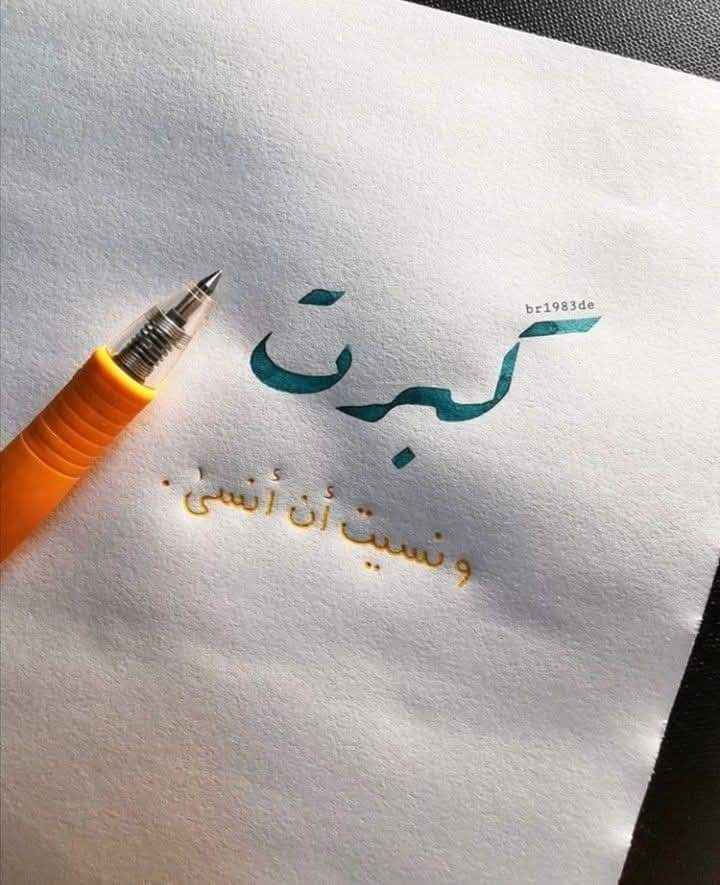 br1983de
كبرت
ونسيت أن أنسىٰ .